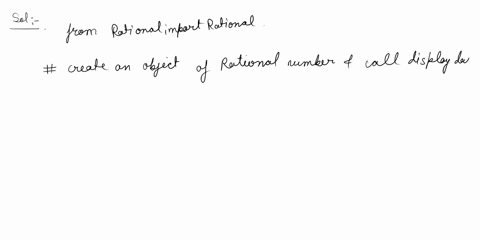 Sol:-
from Rational import Rational.
# create an object of Rational number & call display da